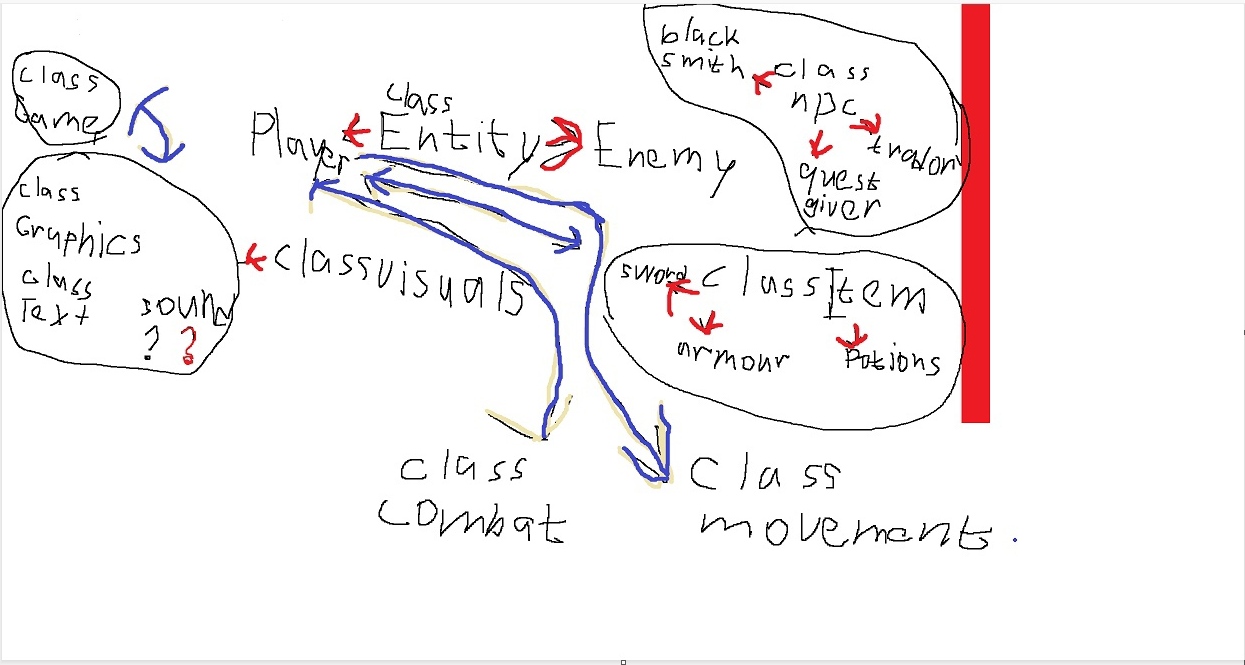 class
Game
class
Graphics
class
Text
sound
? ?
class
Player Entity Enemy
classvisuals
black
smith class
npc
trador
quest
giver
sword class Item
armour Potions
class
combat
class
movement.